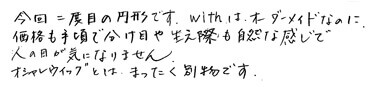 今回二度目の円形です。withは、オーダーメイドなのに、
価格も手頃で分け目や生え際も自然な感じで
人の目が気になりません。
オシャレウィッグとは、まったく別物です。